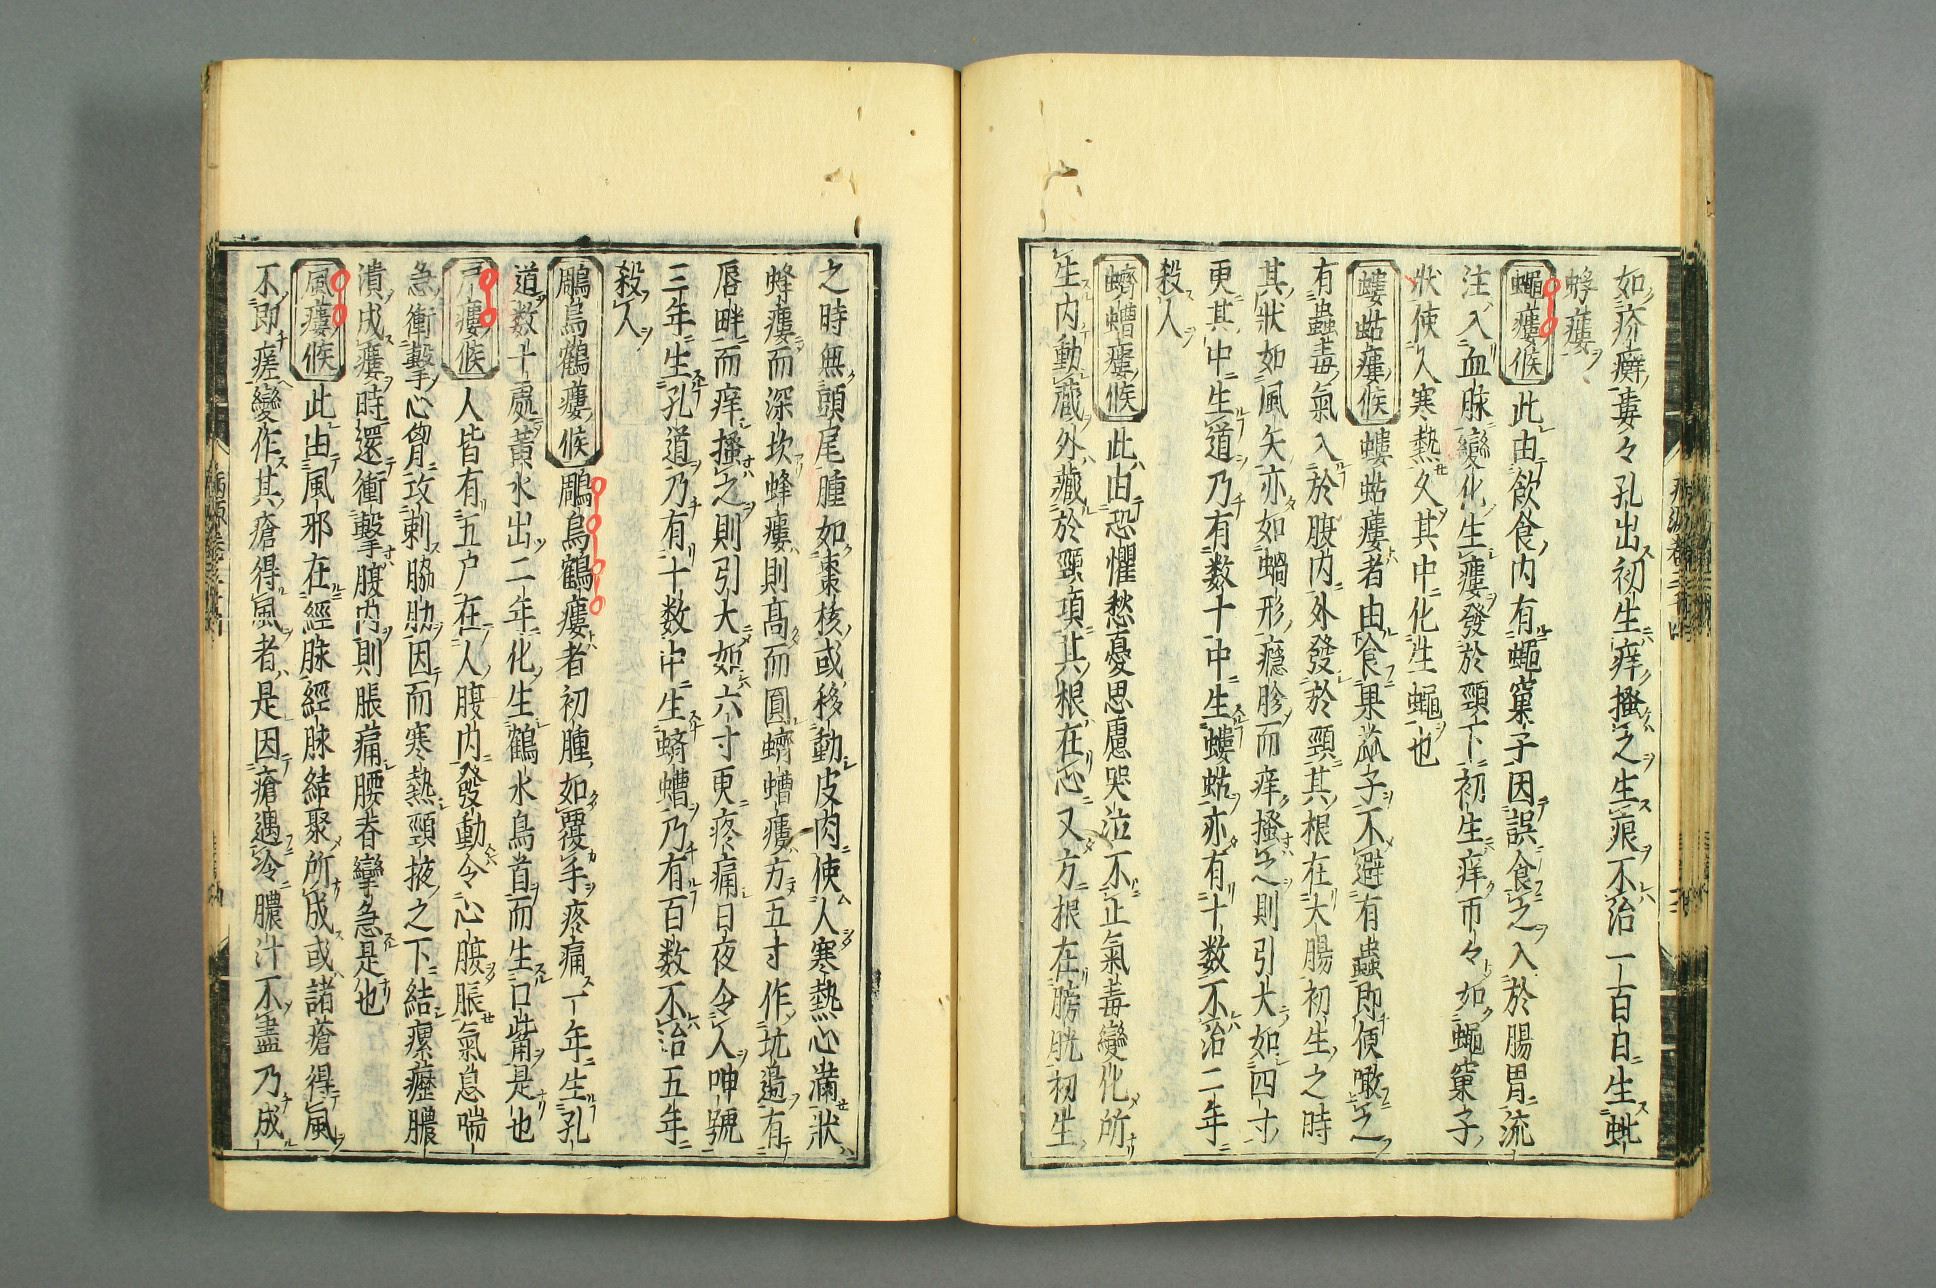 如疥癬婁々孔出初生痒搔之生痕不治一百日生蚍
蜉瘻
蠅瘻候此由飲食内有蠅窠子因誤食之入於腸胃流
注入血脉變化生瘻發於頸下初生痒帀々如蠅窠子
狀使人寒熱久其中化生蠅也
螻蛄瘻候螻蛄瘻者由食果苽子不避有蟲即便噉之
有蟲毒氣入於腹内外發於頸其根在大腸初生之時
其狀如風矢亦如蝸形癮胗而痒搔之則引大如四寸
更其中生道乃有数十中生螻蛄亦有十数不治二年
殺人
蠐螬瘻候此由恐懼愁憂思慮哭泣不止氣毒變化所
生内動藏外藏於頸項其根在心又方根在膀胱初生
之時無頭尾腫如棗核或移動皮肉使人寒熱心滿狀
蜂瘻而深坎蜂瘻則高而圓蠐螬瘻方五寸作坑邉有
唇畔而痒搔之則引大如六寸更疼痛日夜令人呻號
三年生孔道乃有十数中生蠐螬乃有百数不治五年
殺人
鵰烏鶴瘻候鵰烏鶴瘻者初腫如覆手疼痛一年生孔
道数十處黃水出二年化生鶴水鳥首而生口觜是也
尸瘻候人皆有五尸在人腹内發動令心腹脹氣息喘
急衝擊心胷攻刺脇肋因而寒熱頸掖之下結瘰癧膿
潰成瘻時還衝擊腹内則脹痛腰脊攣急是也
風瘻候此由風邪在經脉經脉結聚所成或諸瘡得風
不即瘥變作其瘡得風者是因瘡遇冷膿汁不盡乃成